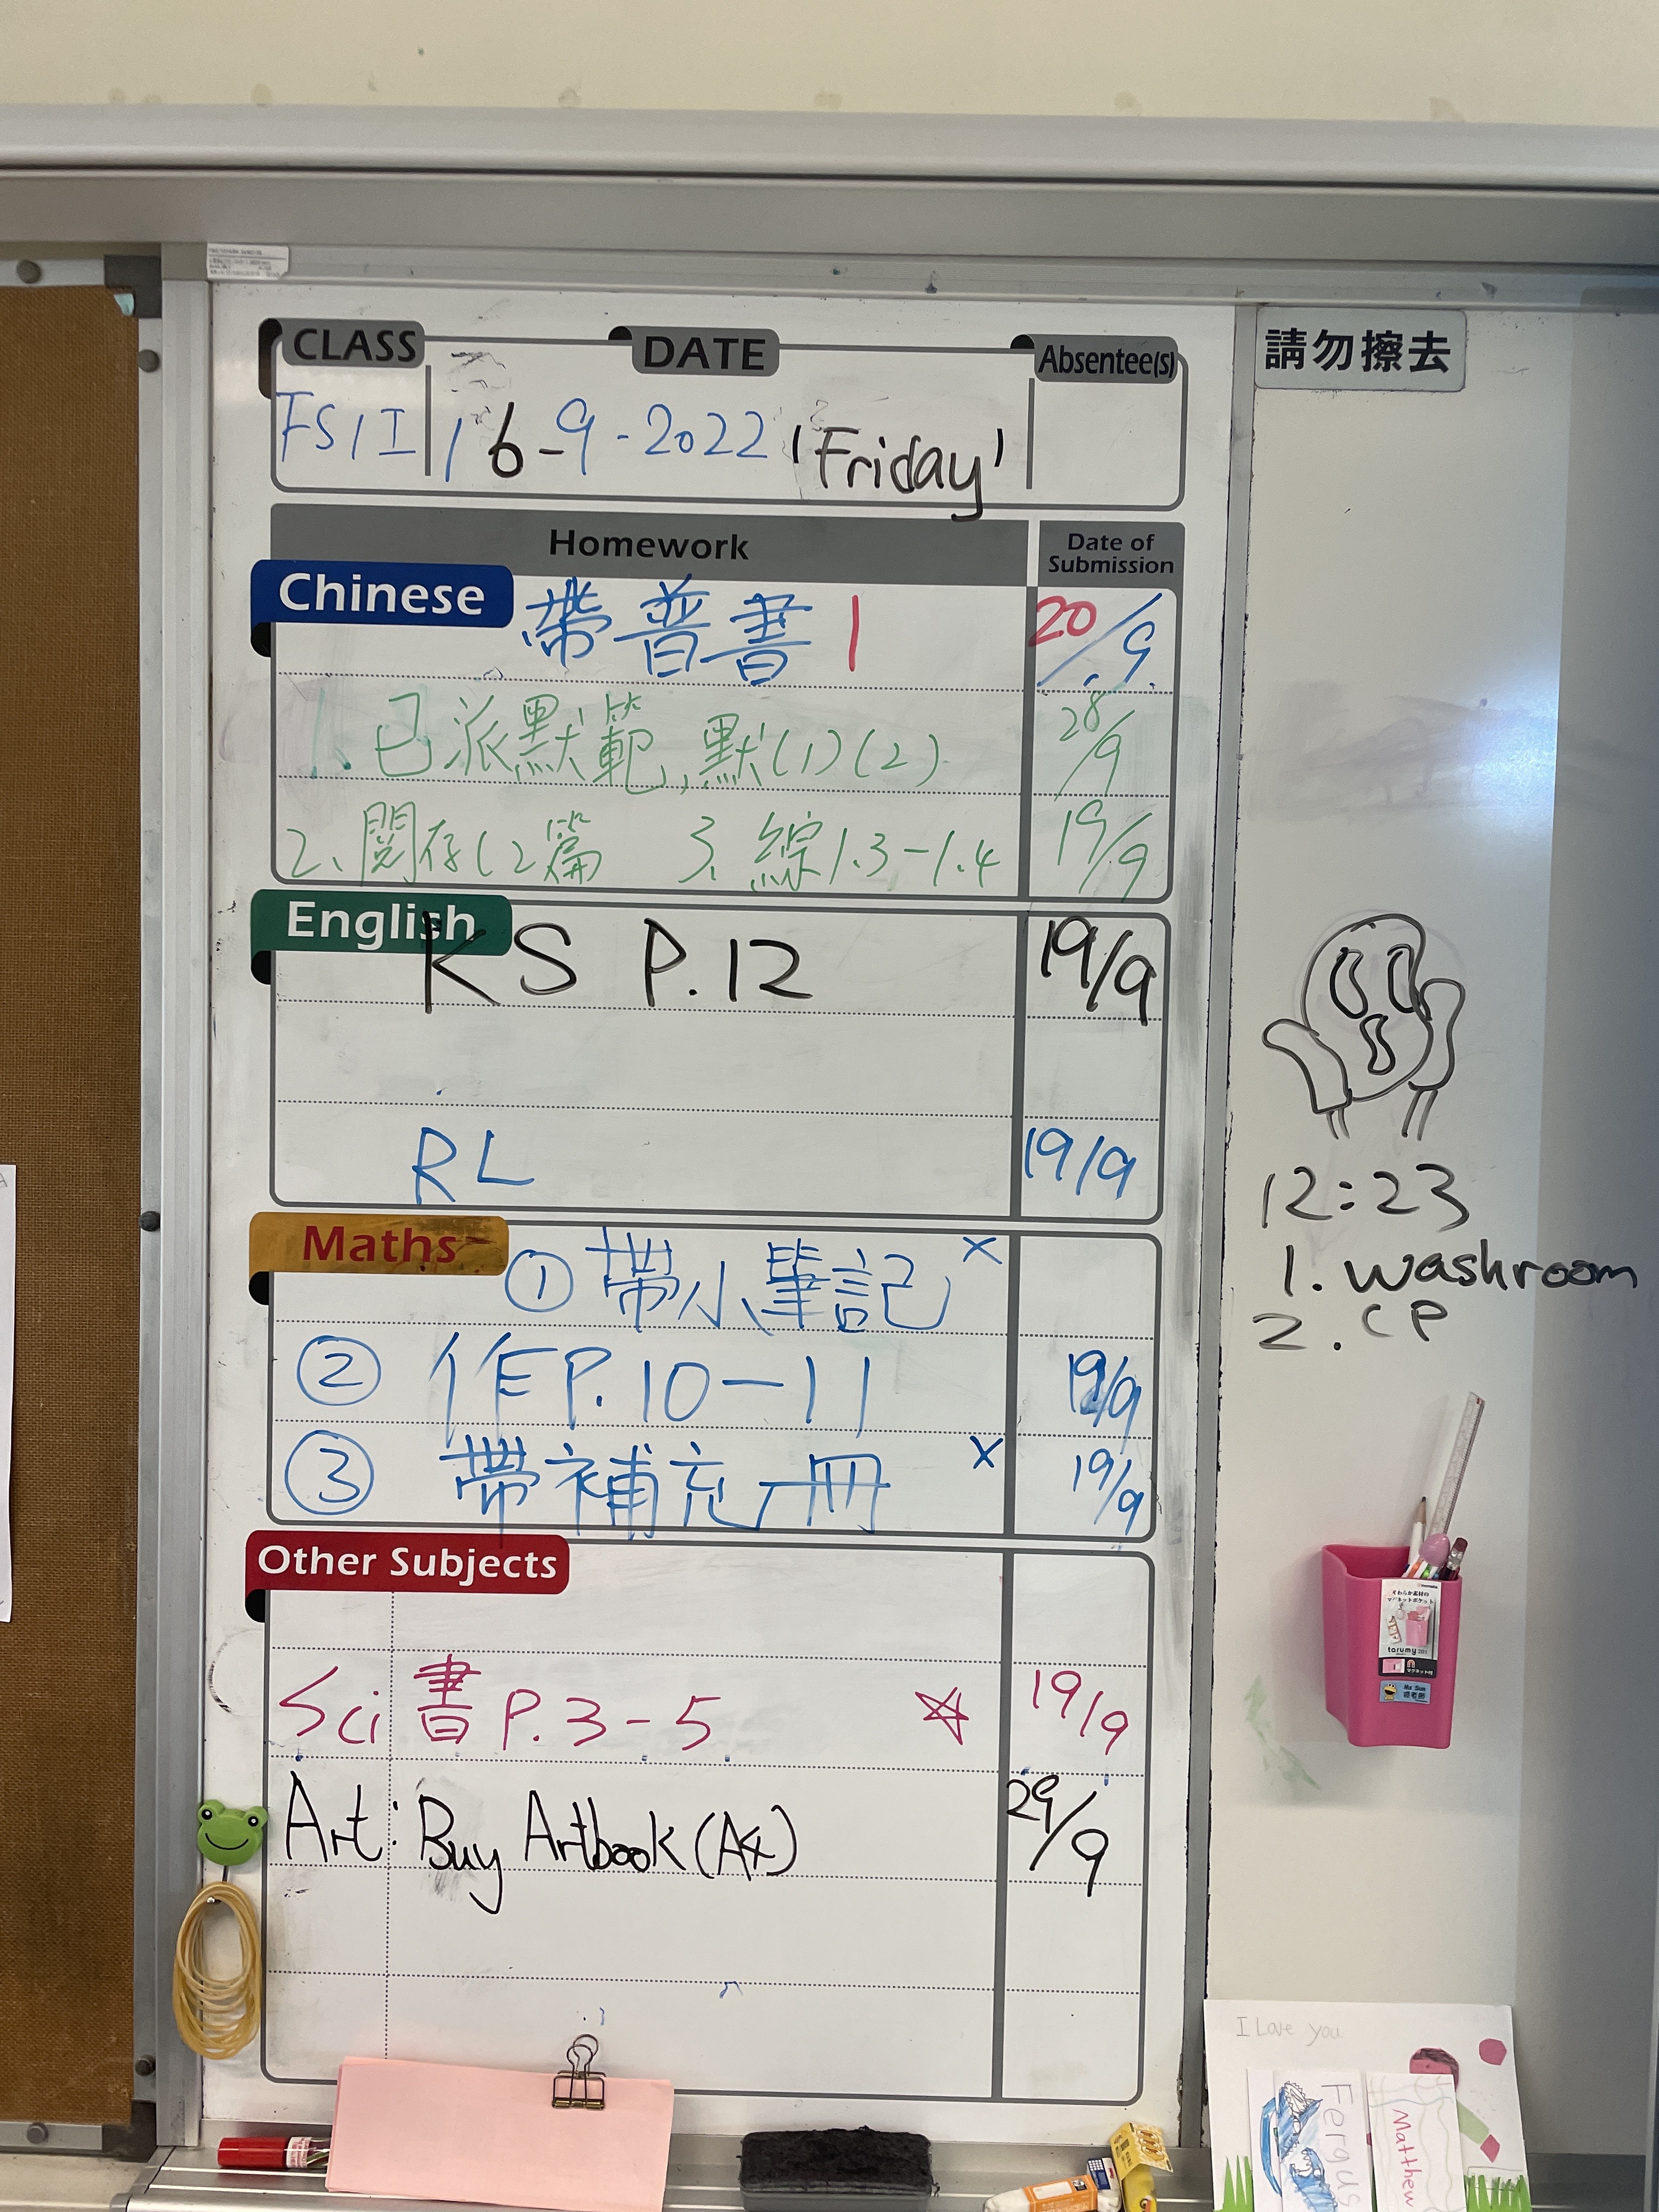 CLASS DATE Absentee(s)
FS1I 16-9-2022 'Friday'
Homework Date of Submission
Chinese 帶普書1 20/9
1. 已派默範,默(1)(2) 28/9
2、閱存(2篇 3. 綜1.3-1.4 19/9
English KS P.12 19/9
RL 19/9
Maths ① 帶小筆記 x
② 作P.10-11 19/9
③ 帶補充冊 x 19/9
Other Subjects
Sci 書 P.3-5 ☆ 19/9
Art: Buy Artbook (A4) 29/9
請勿擦去
12:23
1. washroom
2. CP
tarumy
Ms Sun
I Love you
Fergus
Matthew